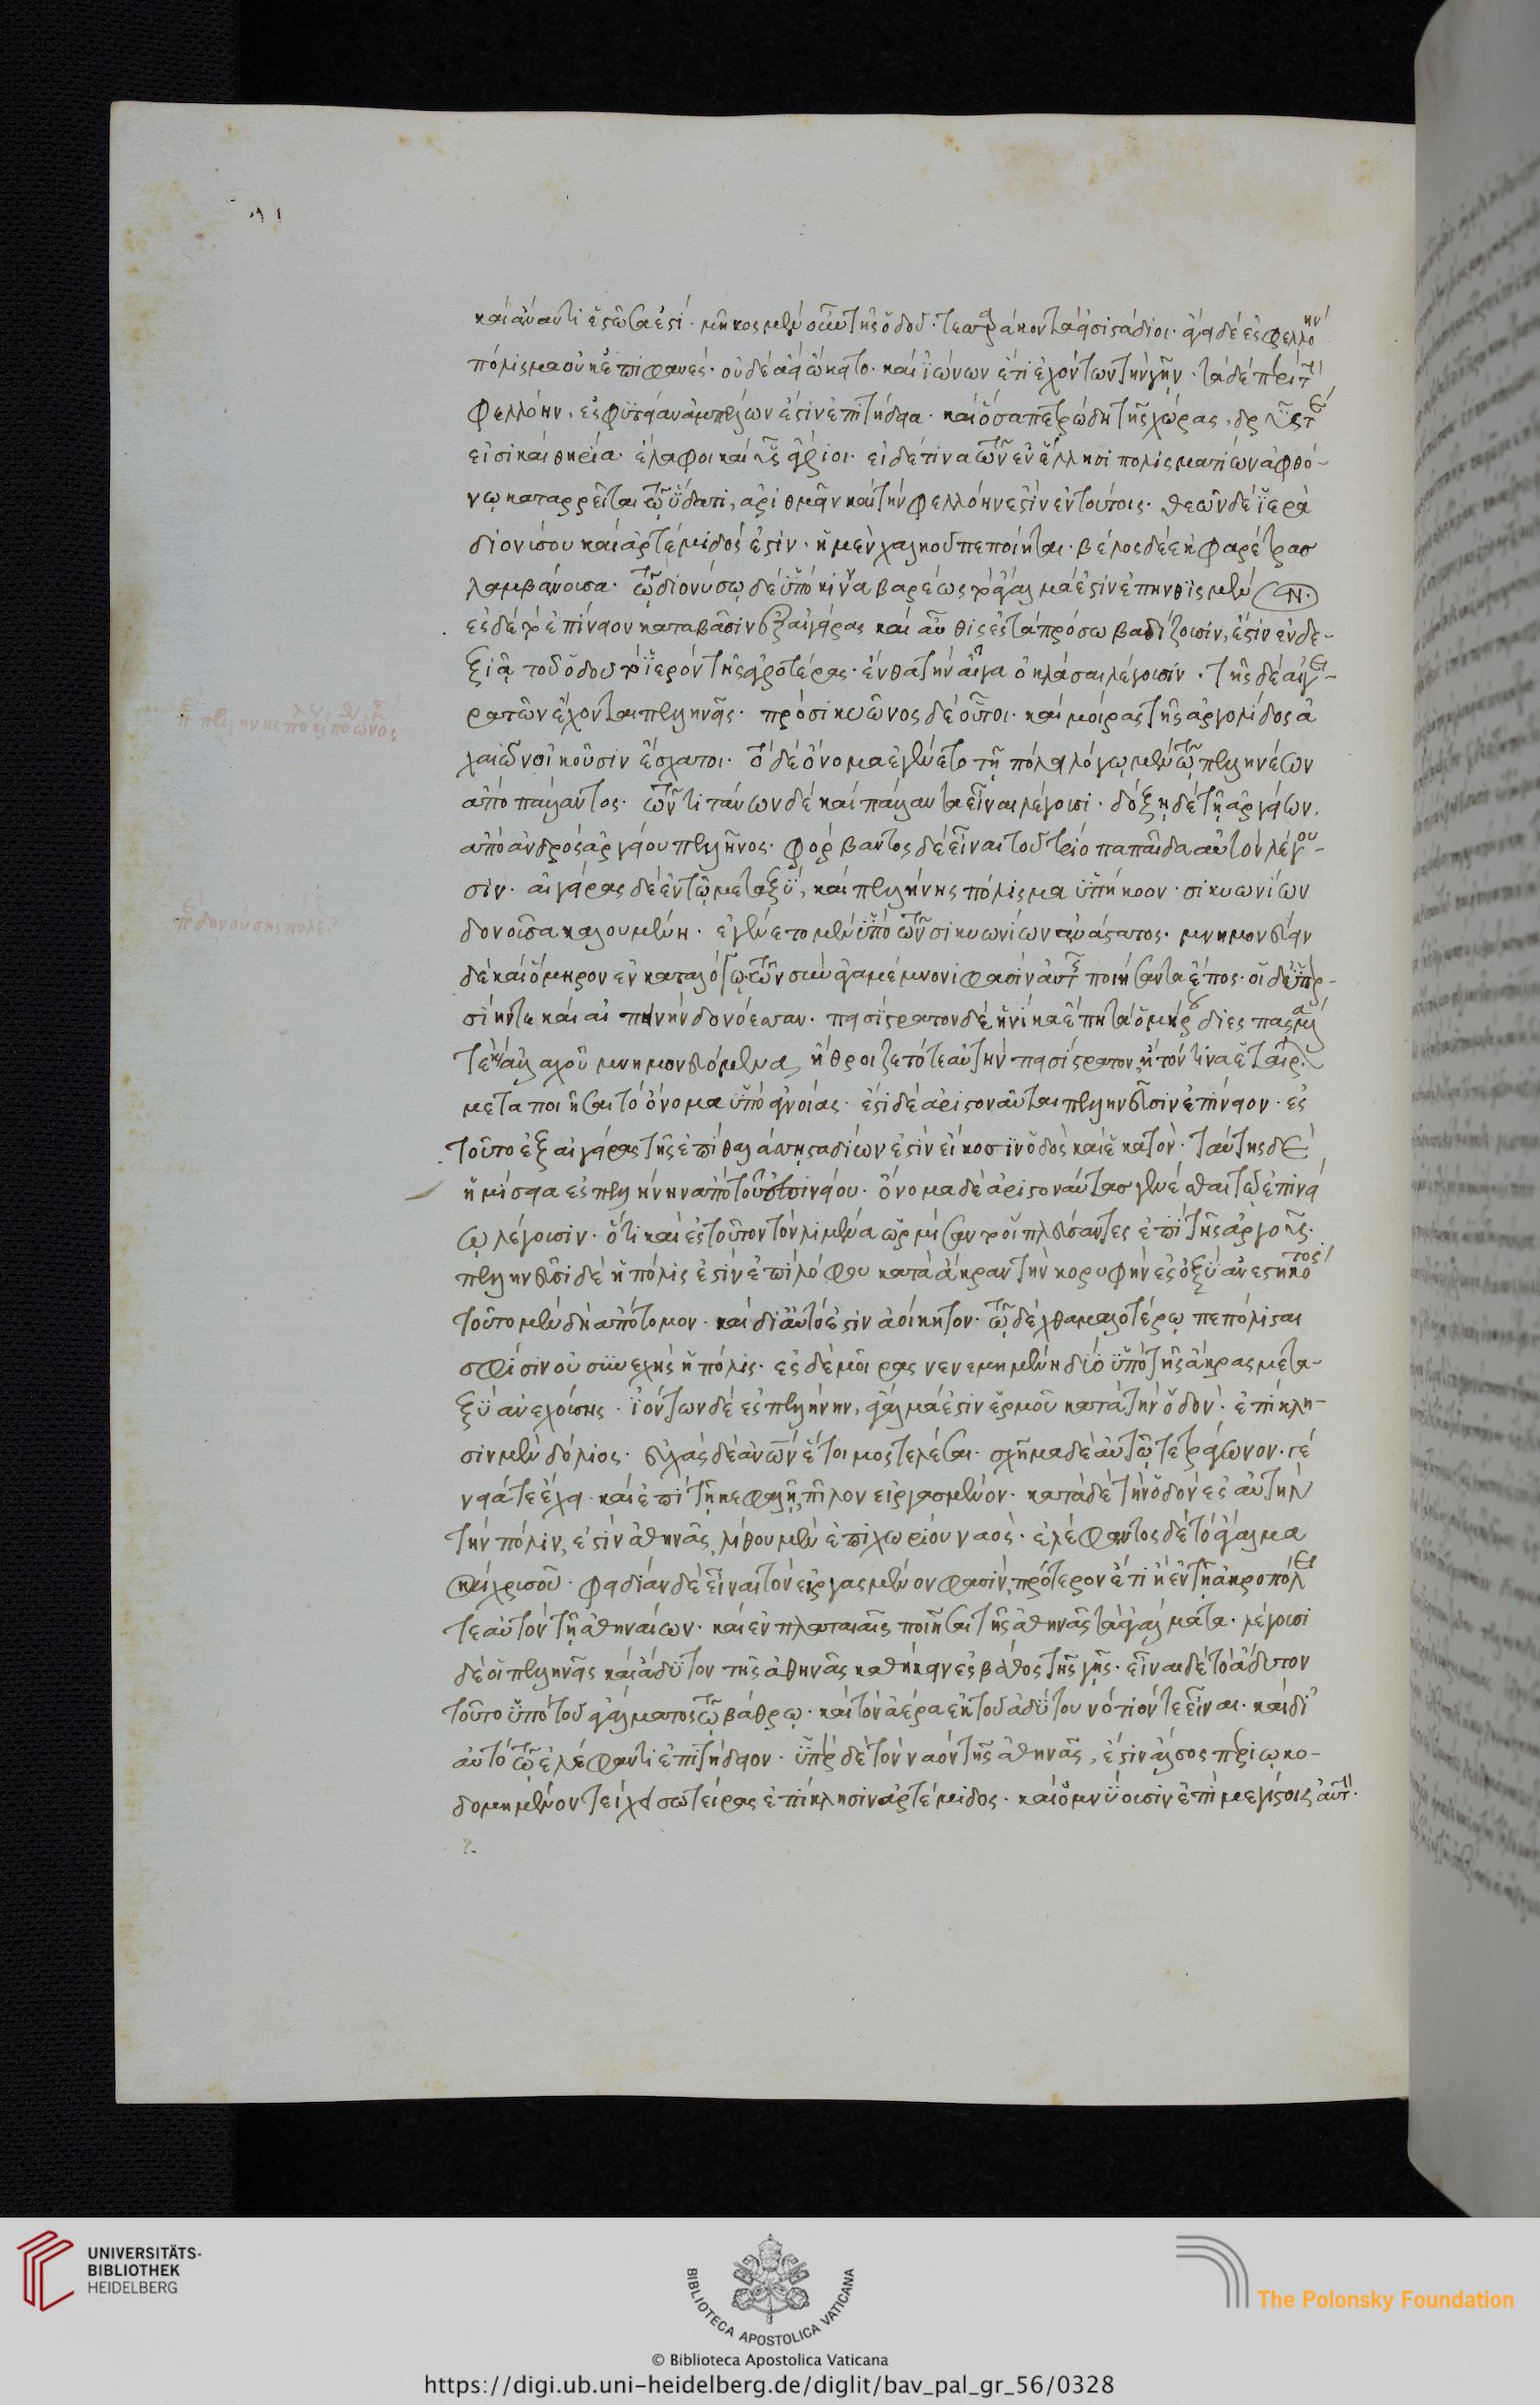 καὶ ἀνάντη ἐς αὐτά ἐστι· μῆκος μὲν οὖν τῆς ὁδοῦ τεσσαράκοντά εἰσι στάδιοι· ἄγει δὲ ἐς φελλόην
πόλισμα οὐκ ἐπιφανές· οὐδὲ ἀεὶ ᾠκεῖτο· καὶ ἰώνων ἔτι ἐχόντων τὴν γῆν· τὰ δὲ περὶ τὴν
φελλόην, ἐς φυτείαν ἀμπέλων ἐστὶν ἐπιτήδεια· καὶ ὅσα πετρώδη τῆς χώρας, δρῦς τέ
εἰσι καὶ θηρία· ἔλαφοι καὶ ὗς ἄγριοι· εἰ δέ τινα τῶν ἐν ἕλλησι πολισματίων ἀφθό-
νῳ καταρρεῖται τῷ ὕδατι, ἀριθμεῖν καὶ τὴν φελλόην ἐστὶν ἐν τούτοις· θεῶν δὲ ἱερὰ
διονύσου καὶ ἀρτέμιδός ἐστιν· ἡ μὲν χαλκοῦ πεποίηται· βέλος δὲ ἐκ φαρέτρας
λαμβάνουσα· τῷ διονύσῳ δὲ ὑπὸ κινναβάρεως τὸ ἄγαλμά ἐστιν ἐπηνθισμένον
ἐς δὲ τὸ ἐπίνειον καταβᾶσιν ἐξ αἰγείρας καὶ αὖθις ἐς τὰ πρόσω βαδίζουσιν, ἔστιν ἐν δε-
ξιᾷ τοῦ ὁδοῦ τὸ ἱερὸν τῆς ἀγροτέρας· ἔνθα τὴν αἶγα ὀκλάσαι λέγουσιν· τῆς δὲ αἰγει-
ρατῶν ἔχονται πελληνεῖς· πρὸς σικυῶνος δὲ οὗτοι· καὶ μοίρας τῆς ἀργολίδος ἀ
χαιῶν οἰκοῦσιν ἔσχατοι· τὸ δὲ ὄνομα ἐγένετο τῇ πόλει λόγῳ μὲν τῷ πελληνέων
ἀπὸ πάλλαντος· τῶν τιτάνων δὲ καὶ πάλλαντα εἶναι λέγουσι· δόξῃ δὲ τῇ ἀργείων,
ἀπὸ ἀνδρὸς ἀργείου πέλληνος· φόρβαντος δὲ εἶναι τοῦ τριόπα παῖδα αὐτὸν λέγου-
σιν· αἰγείρας δὲ ἐν τῷ μεταξύ, καὶ πελλήνης πόλισμα ὑπήκοον σικυωνίων
δονοῦσα καλουμένη· ἐγένετο μὲν ὑπὸ τῶν σικυωνίων ἀνάστατος· μνημονεύειν
δὲ καὶ ὅμηρον ἐν καταλόγῳ τῶν σὺν ἀγαμέμνονί φασιν αὐτῆς ποιήσαντα ἔπος· οἵ θ' ὑπερ-
σίην τε καὶ αἰπεινὴν δονόεσσαν· πεισίστρατον δὲ ἡνίκα ἔπη τὰ ὁμήρου διεσπασμένα
τε καὶ ἀλλαχοῦ μνημονευόμενα, ἤθροιζε τότε αὐτὴν πεισίστρατον ἢ τόν τινα ἑταίρων
μεταποιῆσαι τὸ ὄνομα ὑπὸ ἀγνοίας· ἔστι δὲ ἀριστοναῦται πελληνεῦσιν ἐπίνειον· ἐς
τοῦτο ἐξ αἰγείρας τῆς ἐπὶ θαλάσσῃ σταδίων ἐστὶν εἴκοσιν ὁδὸς καὶ ἑκατόν· ταύτης δὲ
ἡμίσεια ἐς πελλήνην ἀπὸ τοῦ ἐπινείου· ὄνομα δὲ ἀριστοναύτας γενέσθαι τῷ ἐπινεί
ῳ λέγουσιν· ὅτι καὶ ἐς τοῦτον τὸν λιμένα ὡρμίσαντο οἱ πλεύσαντες ἐπὶ τῆς ἀργοῦς·
πελληνεῦσι δὲ ἡ πόλις ἐστὶν ἐπὶ λόφου κατὰ ἄκραν τὴν κορυφὴν ἐς ὀξὺ ἀνεστηκότος
τοῦτο μὲν δὴ ἀπότομον· καὶ δι' αὐτό ἐστιν ἀοίκητον· τῷ δὲ χθαμαλωτέρῳ πεπόλισται
σφίσιν οὐ συνεχὴς ἡ πόλις· ἐς δὲ μοίρας νενεμημένη δύο ὑπὸ τῆς ἄκρας μετα-
ξὺ ἀνεχούσης· ἰόντων δὲ ἐς πελλήνην, ἄγαλμά ἐστιν ἑρμοῦ κατὰ τὴν ὁδόν· ἐπίκλη-
σιν μὲν δόλιος· εὐχὰς δὲ ἀνθρώπων ἕτοιμος τελέσαι· σχῆμα δὲ αὐτῷ τετράγωνον· γέ
νειά τε ἔχει καὶ ἐπὶ τῇ κεφαλῇ πῖλον εἰργασμένον· κατὰ δὲ τὴν ὁδὸν ἐς αὐτὴν
τὴν πόλιν, ἐστὶν ἀθηνᾶς λίθου μὲν ἐπιχωρίου ναός· ἐλέφαντος δὲ τὸ ἄγαλμα
καὶ χρυσοῦ· φειδίαν δὲ εἶναι τὸν εἰργασμένον φασίν, πρότερον ἔτι ἢ ἐν τῇ ἀκροπόλει
τε αὐτὸν τῇ ἀθηναίων· καὶ ἐν πλαταιαῖς ποιῆσαι τῆς ἀθηνᾶς τὰ ἀγάλματα· λέγουσι
δὲ οἱ πελληνεῖς καὶ ἄδυτον τῆς ἀθηνᾶς καθήκειν ἐς βάθος τῆς γῆς· εἶναι δὲ τὸ ἄδυτον
τοῦτο ὑπὸ τοῦ ἀγάλματος τῷ βάθρῳ· καὶ τὸν ἀέρα ἐκ τοῦ ἀδύτου νότιόν τε εἶναι· καὶ δι'
αὐτὸ τῷ ἐλέφαντι ἐπιτήδειον· ὑπὲρ δὲ τὸν ναὸν τῆς ἀθηνᾶς, ἐστὶν ἄλσος περιῳκο-
δομημένον τείχει σωτείρας ἐπίκλησιν ἀρτέμιδος· καὶ ὀμνύουσιν ἐπὶ μεγίστοις αὐτήν·
UNIVERSITÄTS-
BIBLIOTHEK
HEIDELBERG
BIBLIOTECA APOSTOLICA VATICANA
The Polonsky Foundation
© Biblioteca Apostolica Vaticana
https://digi.ub.uni-heidelberg.de/diglit/bav_pal_gr_56/0328